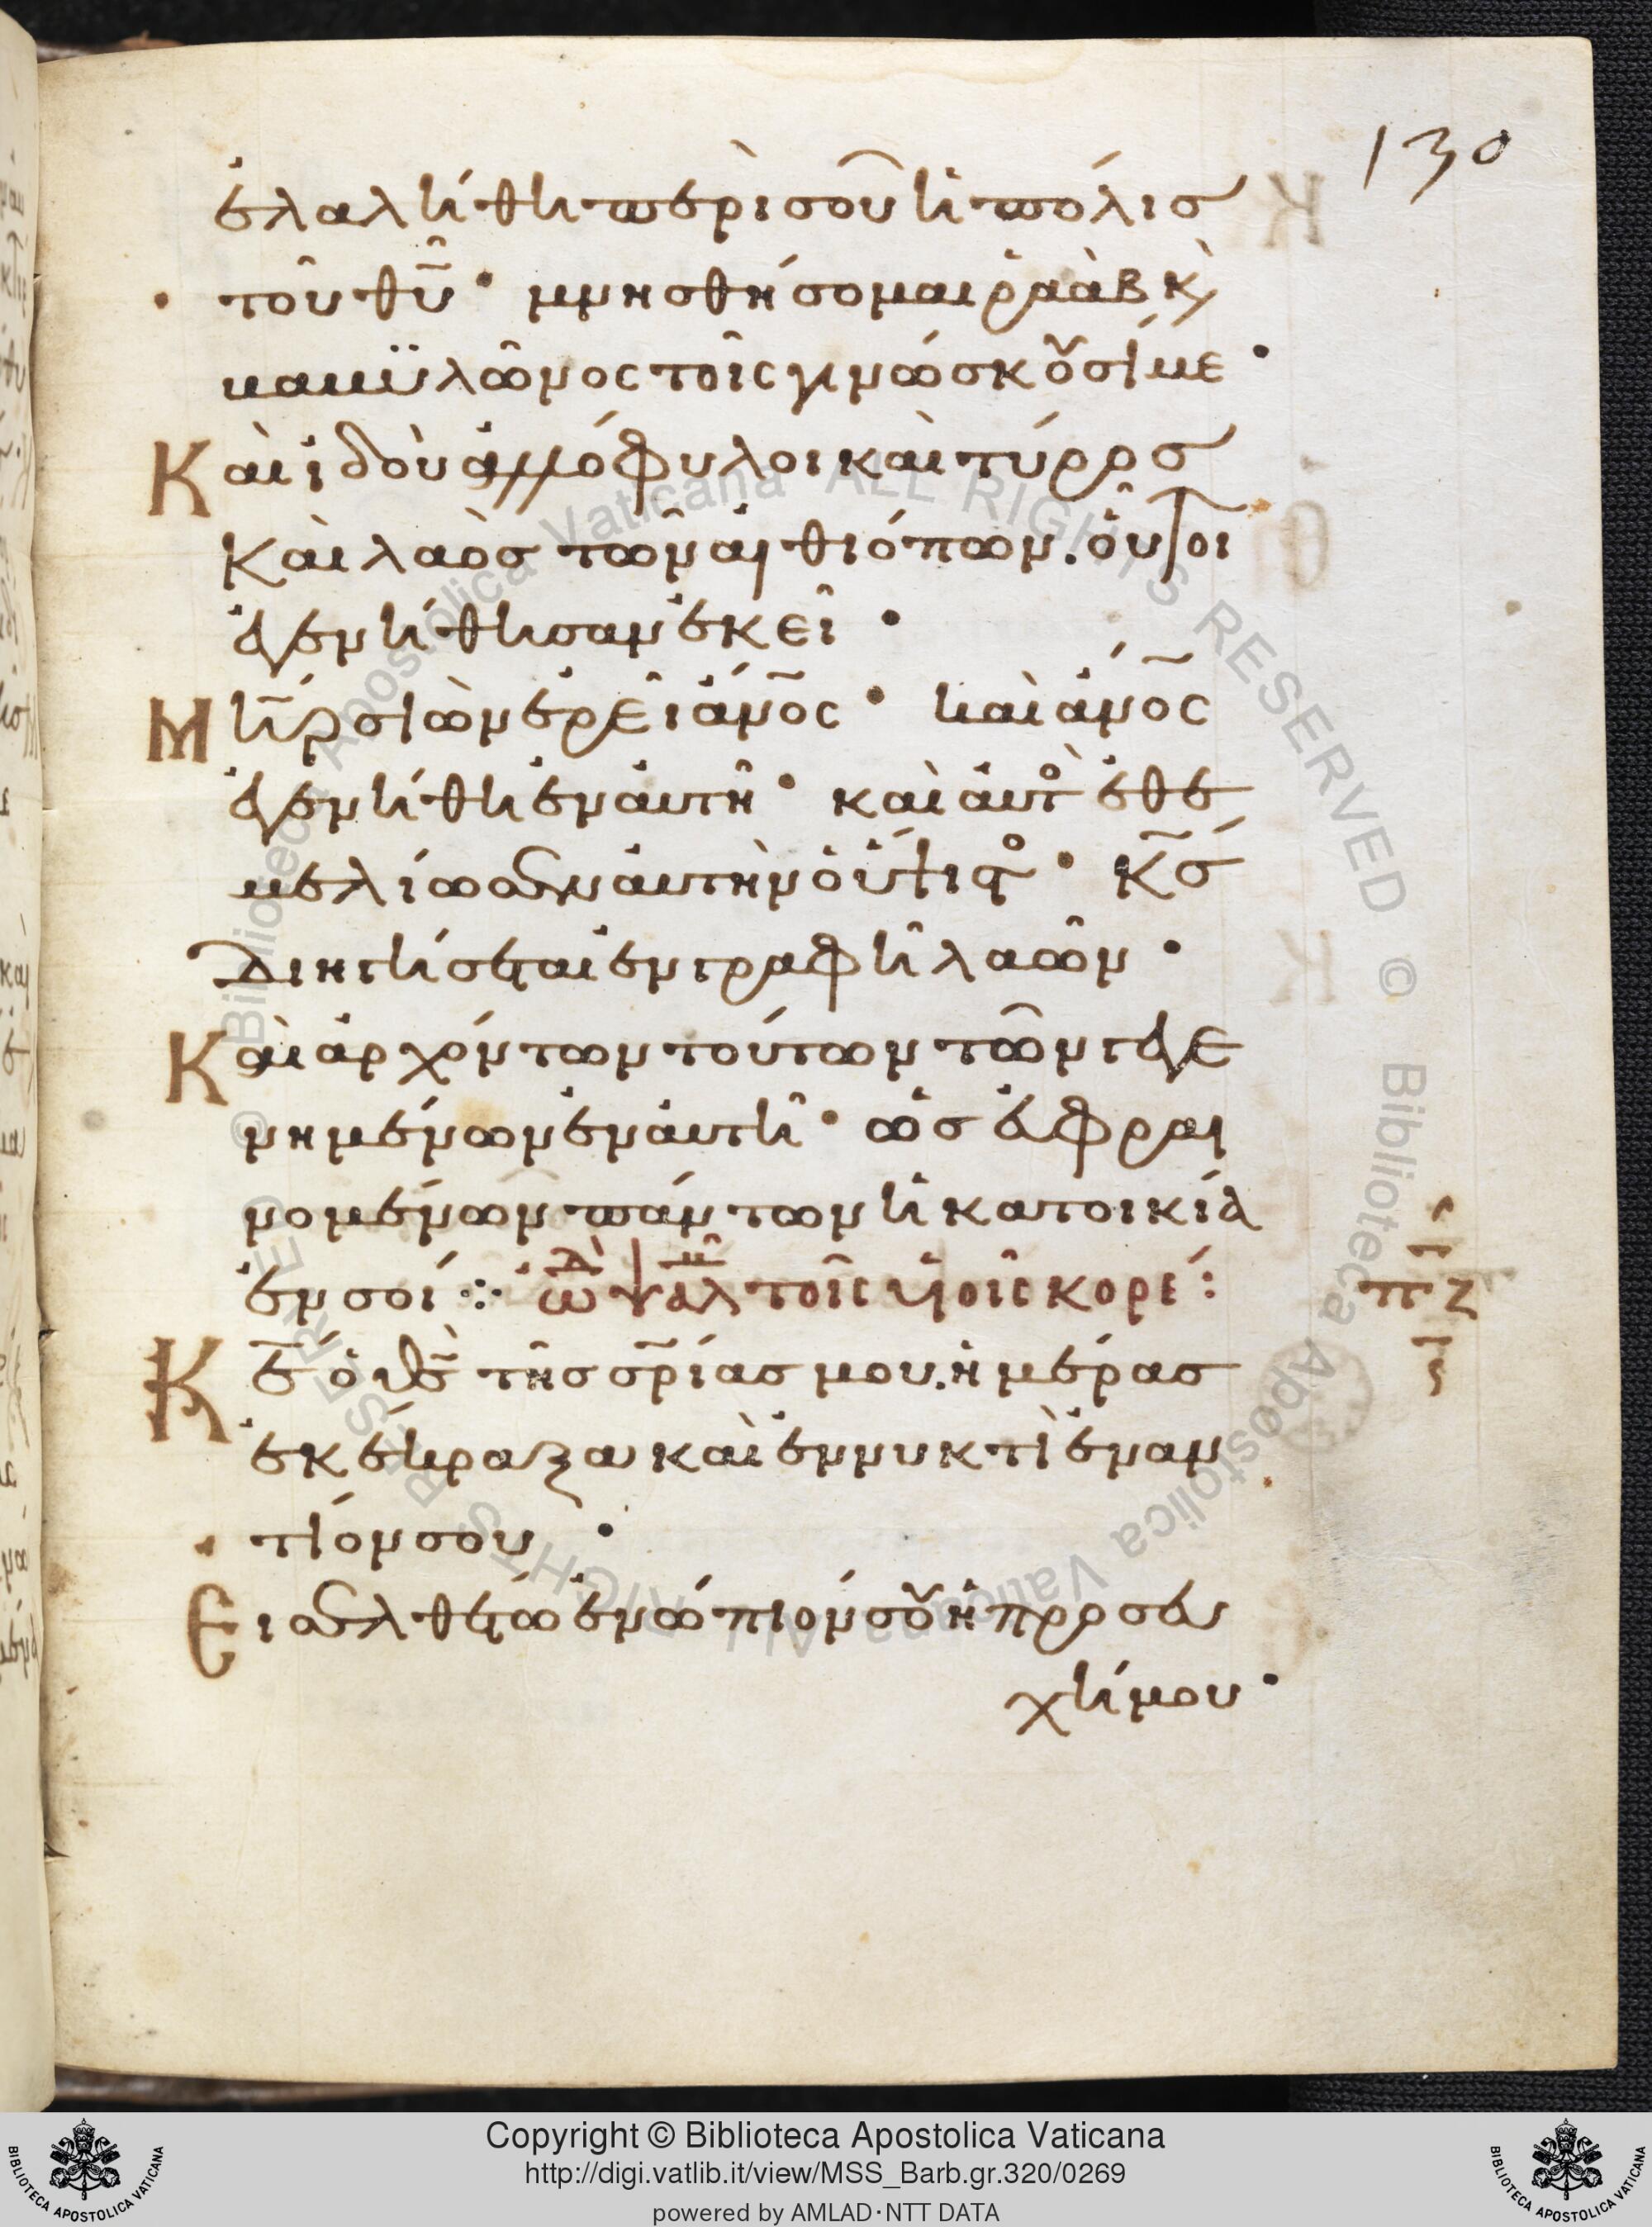 130
ἐλαλήθη περὶ σοῦ ἡ πόλισ
τοῦ θῦ· μνησθήσομαι ῥαὰβ κ̀
καιϋλῶνος τοῖς γινώσκουσί με·
Καὶ ἰδοὺ ἀλλόφυλοι καὶ τύρος
καὶ λαὸσ τῶν αἰθιόπων. οὗτοι
ἐγενήθησαν ἐκεῖ·
Μη̅ρ σιὼν ἐρεῖ ἄνο̅ς· καὶ ἄνο̅ς
ἐγενήθη ἐν αὐτῆ· καὶ αὐτὸ ἐθε
μελίωσεν αὐτὴν ὁ ὕψιστο· Κσ̅
διηγήσεται ἐν γραφῆ λαῶν·
Καὶ ἀρχόντων τούτων τῶν γεγε
νημένων ἐν αὐτῆ· ὡσ εὐφραι
νομένων πάντων ἡ κατοικία
ἐν σοί: ὠδ ψαλμ τοῖς υἱοῖς κορέ:
πζ
Κε̅ ὁ θσ̅ τῆσ σρ̅ίασ μου. ἡμέρασ
ἐκέκραξα καὶ ἐν νυκτὶ ἐναν
τίον σου·
Εισελθέτω ἐνώπιόν σου ἡ προσευ
χή μου·
© Biblioteca Apostolica Vaticana ALL RIGHTS RESERVED © Biblioteca Apostolica Vaticana ALL RIGHTS RESERVED
Copyright © Biblioteca Apostolica Vaticana
http://digi.vatlib.it/view/MSS_Barb.gr.320/0269
powered by AMLAD·NTT DATA
BIBLIOTECA APOSTOLICA VATICANA
BIBLIOTECA APOSTOLICA VATICANA